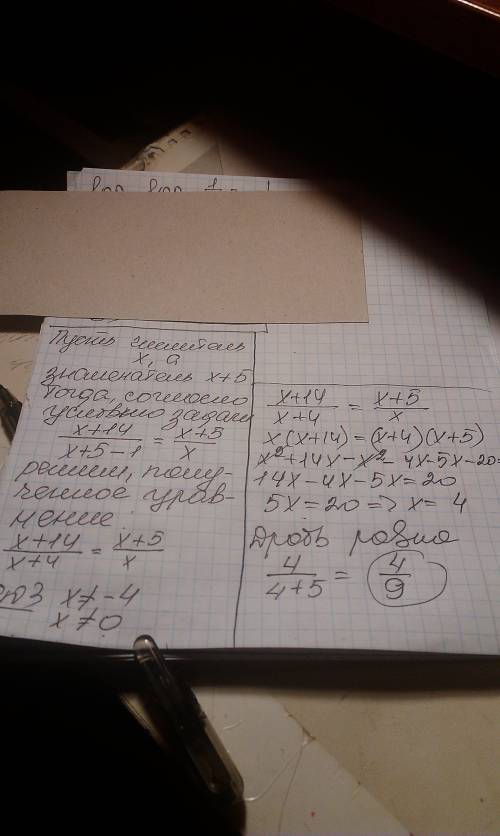 Пусть числитель
x, а
знаменатель x+5
Тогда, согласно
условию задачи
x+14/x+5-1 = x+5/x
решим, полу-
ченное урав-
нение:
x+14/x+4 = x+5/x
ОДЗ x≠-4
x≠0
x+14/x+4 = x+5/x
x(x+14)=(x+4)(x+5)
x²+14x-x²-4x-5x-20=
14x-4x-5x=20
5x=20=>x=4
Дробь равна
4/4+5 = 4/9